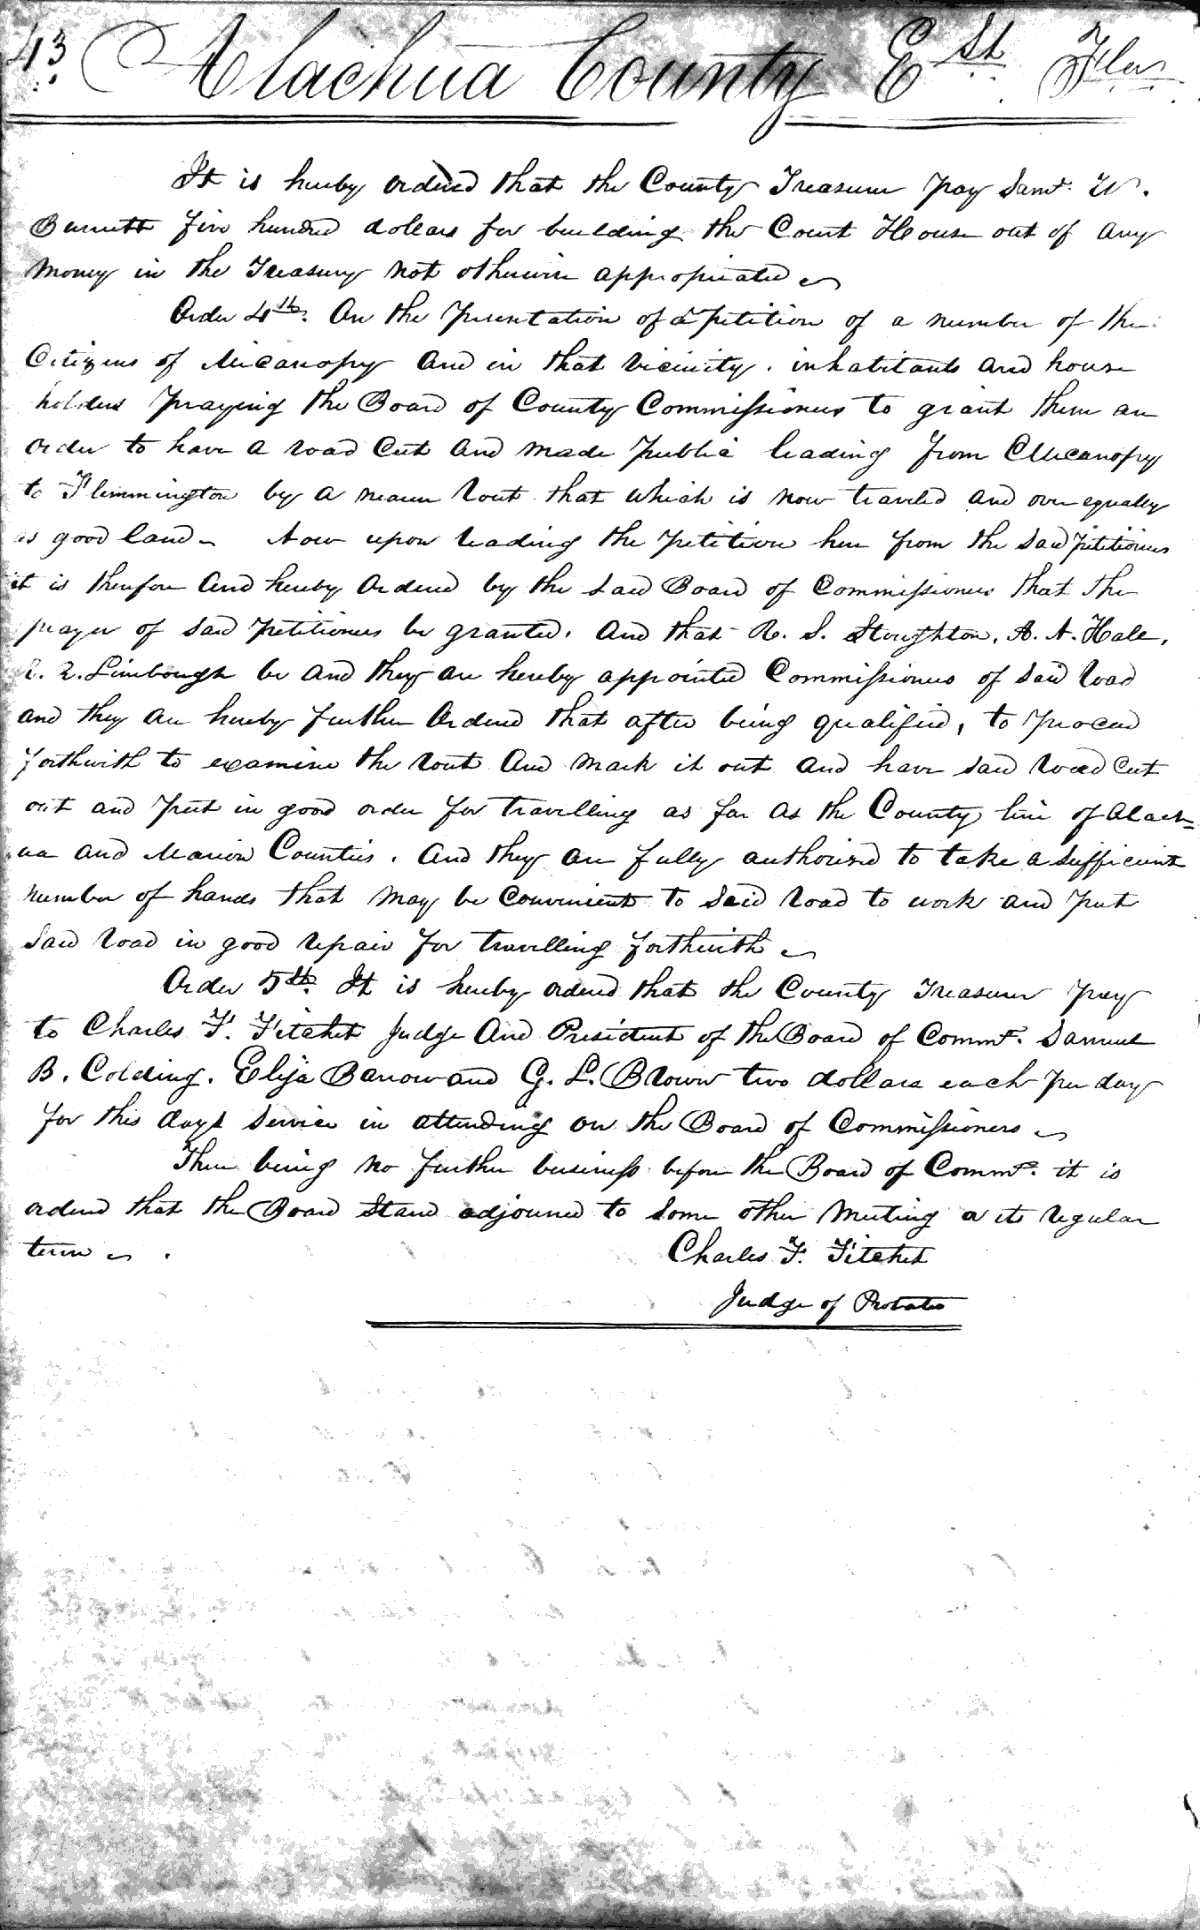 43 Alachua County E St Flor
It is hereby ordered that the County Treasurer pay Saml. W.
Barnett five hundred dollars for building the Court House out of any
money in the Treasury not otherwise appropriated
Order 4th. On the presentation of a petition of a number of the
Citizens of Micanopy and in that vicinity. inhabitants and house
holders praying the Board of County Commissioners to grant them an
order to have a road Cut and made public leading from Micanopy
to Flemmington by a nearer rout that which is now traveled and over equally
as good land. Now upon reading the petition here from the said petitioners
it is therefore and hereby Ordered by the said Board of Commissioners that the
prayer of said petitioners be granted. And that R. S. Stoughton, A. A. Hale,
Z. Limbough be and they are hereby appointed Commissioners of said road
and they are hereby further Ordered that after being qualified, to proceed
forthwith to examine the rout and mark it out and have said road Cut
out and put in good order for travelling as far as the County line of Alach=
ua and Marion Counties. And they are fully authorised to take a sufficient
number of hands that may be Convenient to said road to work and put
said road in good repair for travelling forthwith
Order 5th. It is hereby ordered that the County Treasurer pay
to Charles F. Fitchet Judge and President of the Board of Commrs. Samuel
B. Colding. Elija Barrow and G. L. Brown two dollars each per day
for this days service in attending on the Board of Commissioners
There being no further business before the Board of Commrs. it is
ordered that the Board Stand adjourned to some other meeting or its regular
term
Charles F. Fitchet
Judge of Probate